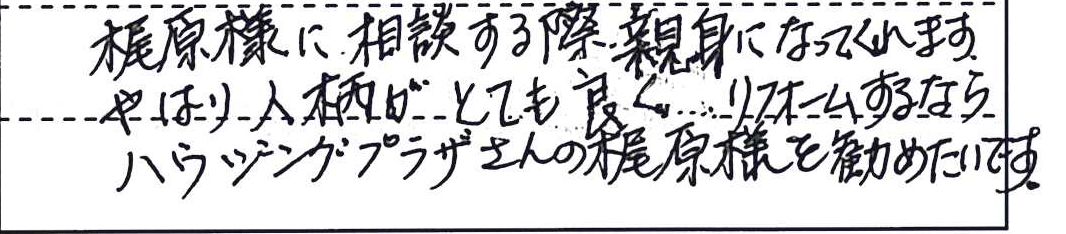 梶原様に相談する際、親身になってくれます。
やはり人柄がとても良く、リフォームするなら
ハウジングプラザさんの梶原様を勧めたいです。